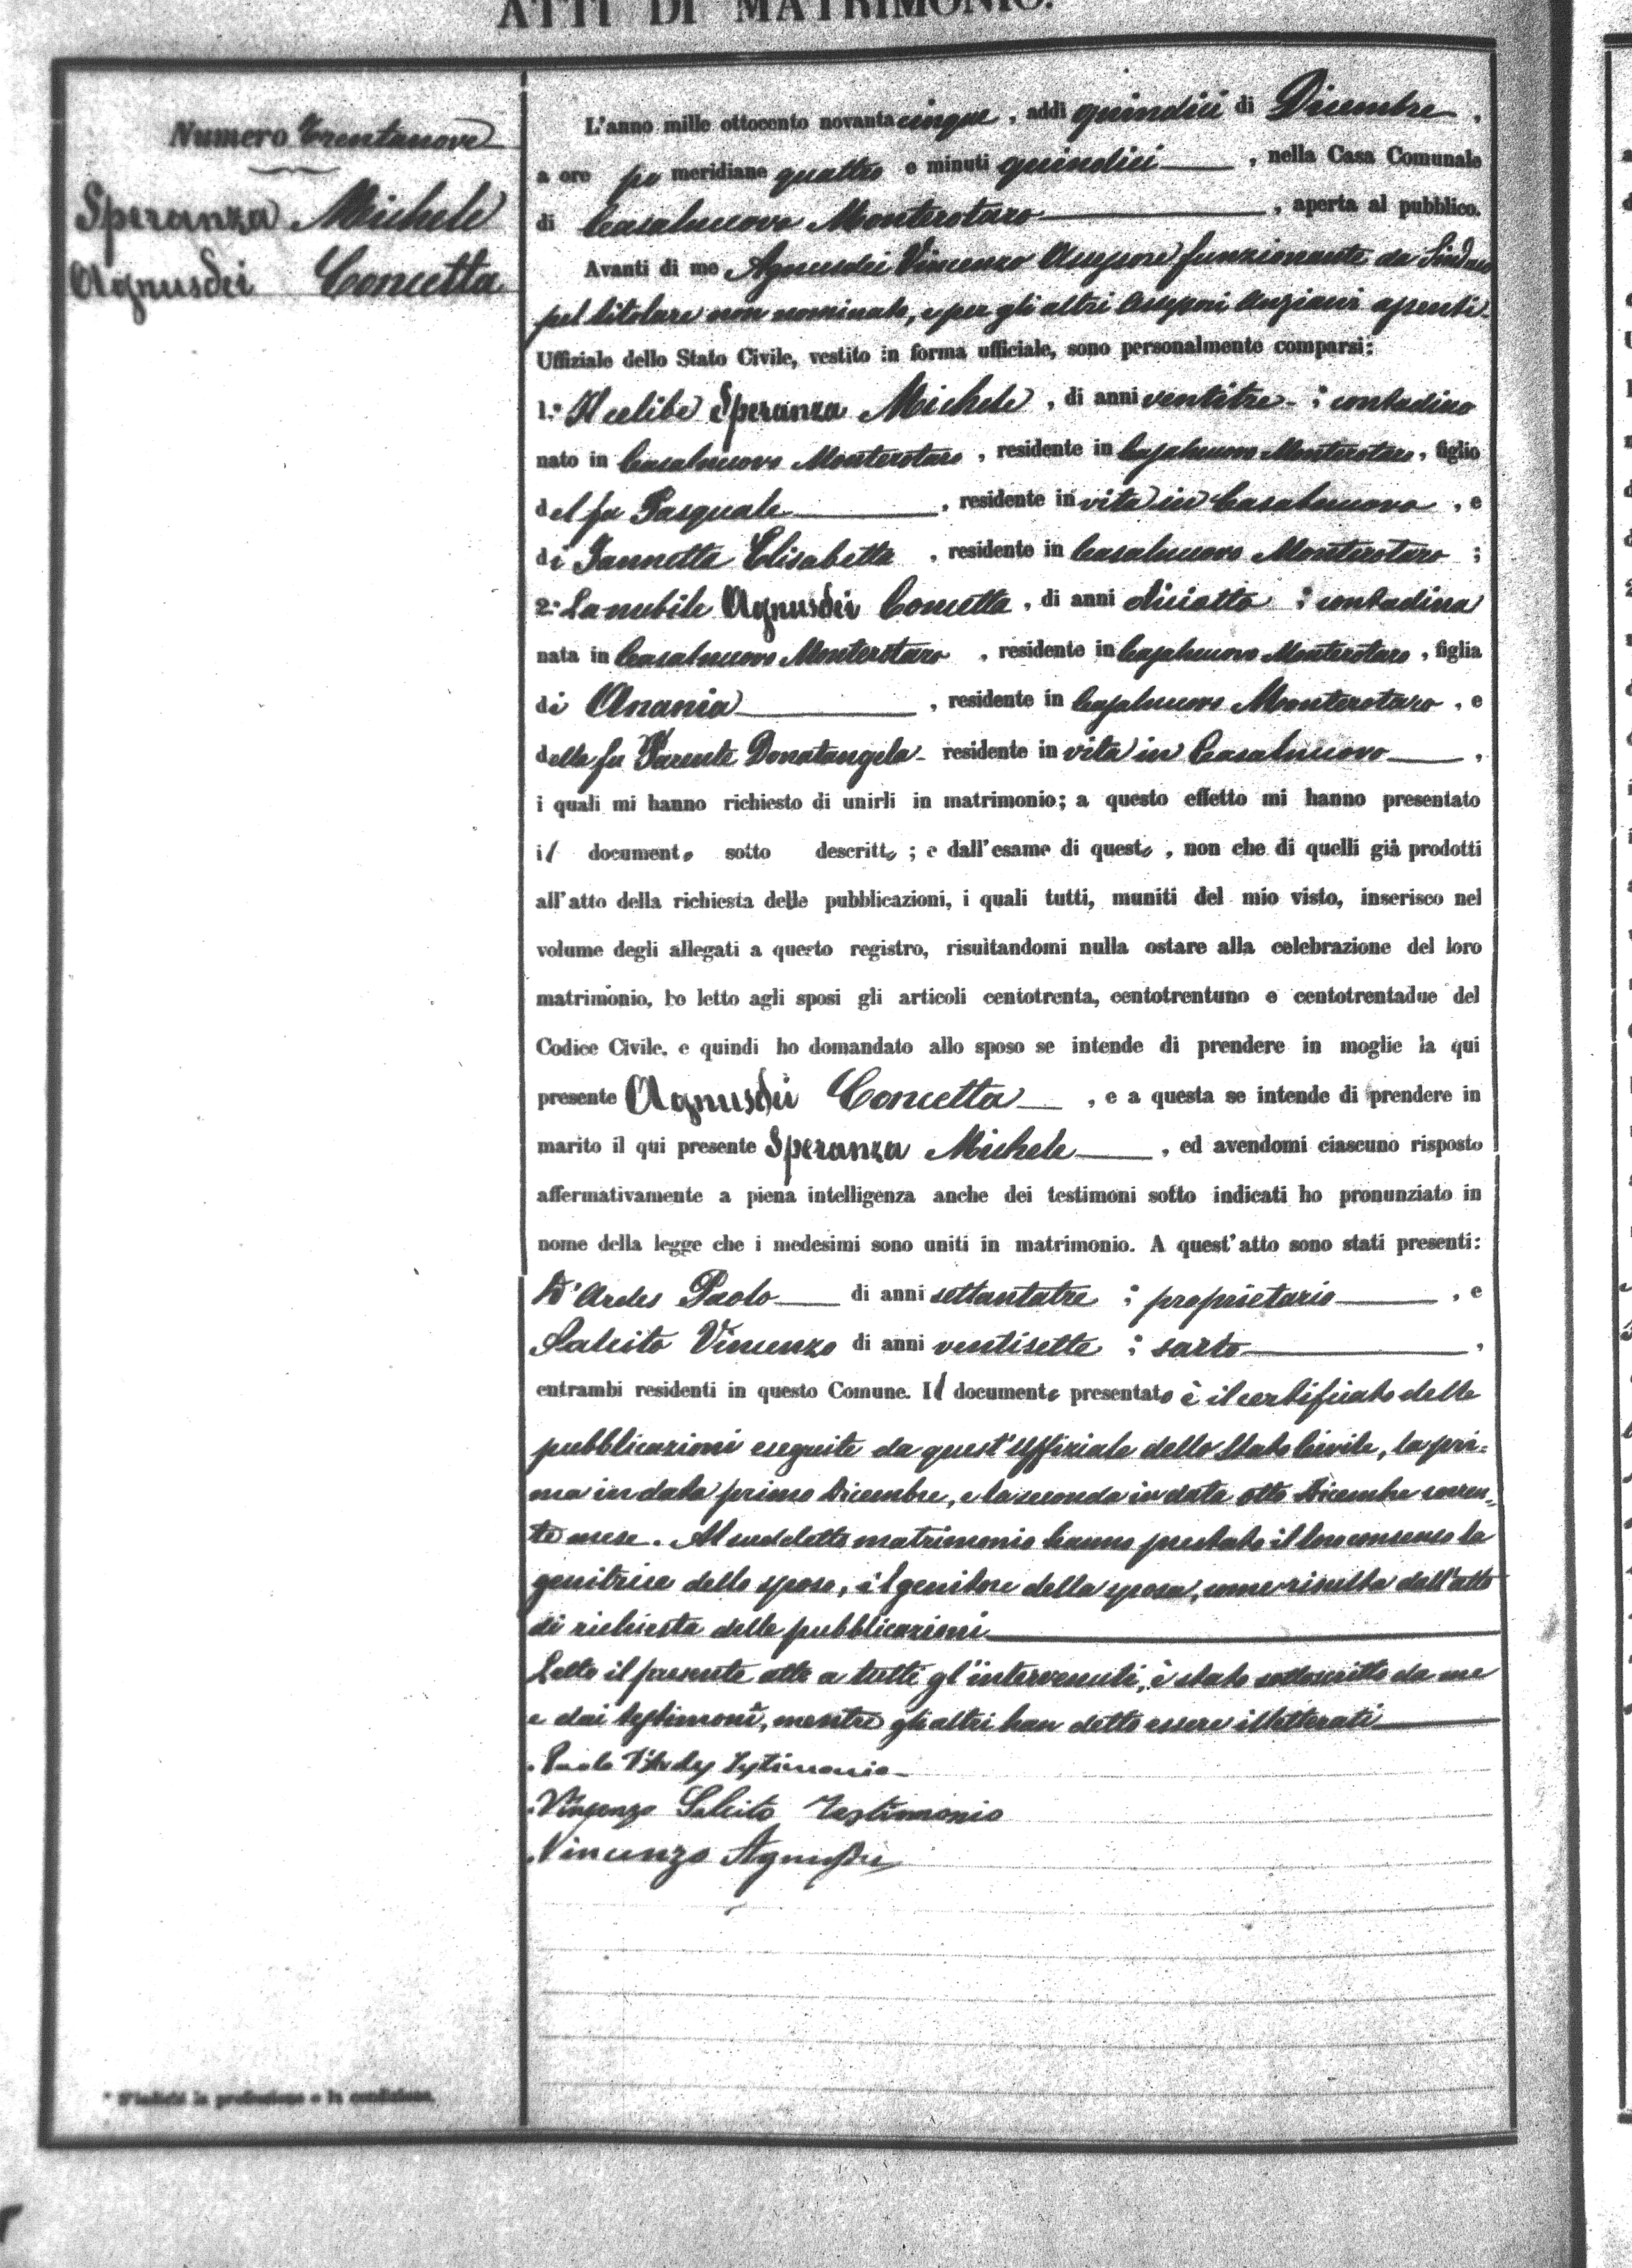 ATTI DI MATRIMONIO.
Numero Trentanove
Speranza Michele
Agnusdei Concetta
L'anno mille ottocento novantacinque, addì quindici di Dicembre,
a ore po meridiane quattro e minuti quindici, nella Casa Comunale
di Casalnuovo Monterotaro, aperta al pubblico.
Avanti di me Agnusdei Vincenzo Assessore funzionante da Sindaco
pel titolare non nominato, e per gli altri Assessori Anziani assenti
Uffiziale dello Stato Civile, vestito in forma ufficiale, sono personalmente comparsi:
1.° Il celibe Speranza Michele, di anni ventitre; contadino
nato in Casalnuovo Monterotaro, residente in Casalnuovo Monterotaro, figlio
del fu Pasquale, residente in vita in Casalnuovo, e
di Iannetta Elisabetta, residente in Casalnuovo Monterotaro;
2.° La nubile Agnusdei Concetta, di anni diciotto; contadina
nata in Casalnuovo Monterotaro, residente in Casalnuovo Monterotaro, figlia
di Anania, residente in Casalnuovo Monterotaro, e
della fu Parente Donatangela residente in vita in Casalnuovo,
i quali mi hanno richiesto di unirli in matrimonio; a questo effetto mi hanno presentato
il documento sotto descritto; e dall'esame di questo, non che di quelli già prodotti
all'atto della richiesta delle pubblicazioni, i quali tutti, muniti del mio visto, inserisco nel
volume degli allegati a questo registro, risultandomi nulla ostare alla celebrazione del loro
matrimonio, ho letto agli sposi gli articoli centotrenta, centotrentuno e centotrentadue del
Codice Civile, e quindi ho domandato allo sposo se intende di prendere in moglie la qui
presente Agnusdei Concetta, e a questa se intende di prendere in
marito il qui presente Speranza Michele, ed avendomi ciascuno risposto
affermativamente a piena intelligenza anche dei testimoni sotto indicati ho pronunziato in
nome della legge che i medesimi sono uniti in matrimonio. A quest'atto sono stati presenti:
D'Ardes Paolo di anni settantatre; proprietario, e
Salcito Vincenzo di anni ventisette; sarto,
entrambi residenti in questo Comune. Il documento presentato è il certificato delle
pubblicazioni eseguite da quest'Uffiziale dello Stato Civile, la pri-
ma in data primo Dicembre, e la seconda in data otto Dicembre corren-
te mese. Al suddetto matrimonio hanno prestato il loro consenso la
genitrice dello sposo, il genitore della sposa, come risulta dall'atto
di richiesta delle pubblicazioni
Letto il presente atto a tutti gl'intervenuti, è stato sottoscritto da me
e dai testimoni, mentre gli altri han detto essere illetterati
Paolo D'Ardes Testimonio
Vincenzo Salcito Testimonio
Vincenzo Agnusdei
* S'indichi la professione o la condizione.